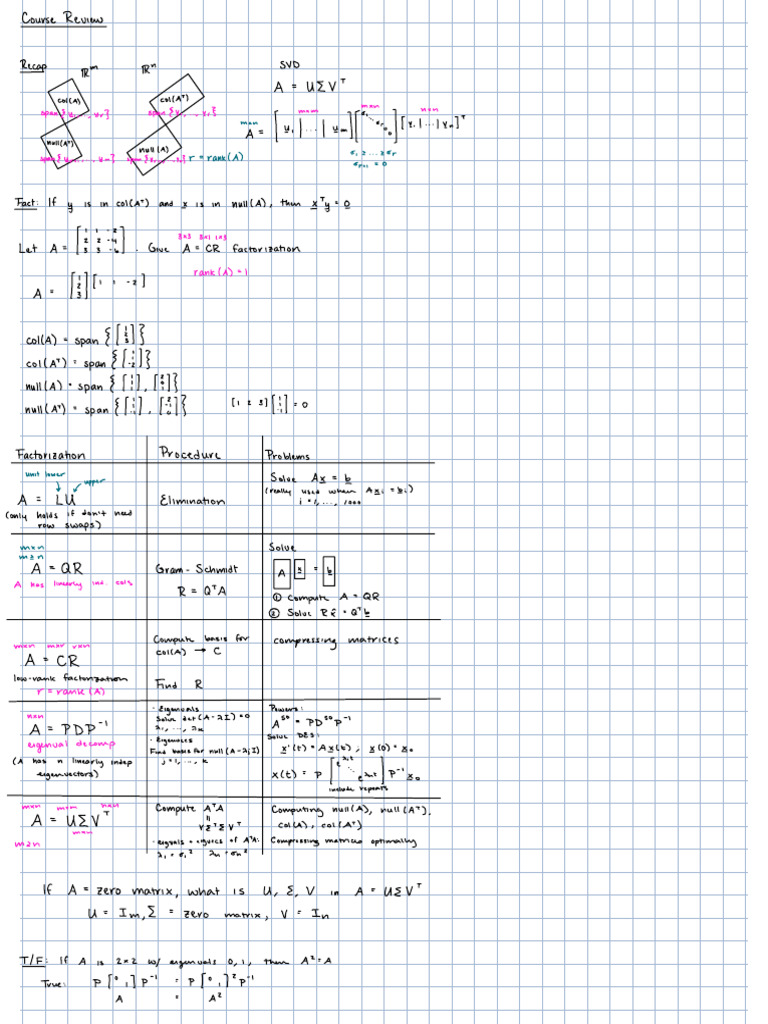 Course Review
Recap
ℝᵐ ℝⁿ SVD
A = UΣVᵀ
col(A) col(Aᵀ)
null(Aᵀ) null(A)
r = rank(A)
m×n m×m m×n n×n
A = [u₁ | ... | uₘ] [σ₁ ⋱ σᵣ ⋱ 0] [v₁ | ... | vₙ]ᵀ
σ₁ ≥ ... ≥ σᵣ
σᵣ₊₁ = 0
Fact: If y is in col(Aᵀ) and x is in null(A), then xᵀy = 0
Let A = [1 1 -2; 2 2 -4; 3 3 -6]. Give A = CR factorization
3×3 3×1 1×3
rank(A) = 1
A = [1; 2; 3] [1 1 -2]
col(A) = span {[1; 2; 3]}
col(Aᵀ) = span {[1; 1; -2]}
null(A) = span {[1; 1; 1], [2; 0; 1]}
null(Aᵀ) = span {[1; 1; -1], [2; -1; 0]}
[1 2 3] [1; 1; -1] = 0
Factorization Procedure Problems
unit lower upper
A = LU
(only holds if don't need
row swaps)
Elimination
Solve Ax = b
(really used when Axᵢ = bᵢ)
i = 1, ..., 1000
m×n
m≥n
A = QR
A has linearly ind. cols
Gram-Schmidt
R = QᵀA
Solve
A x = b
① Compute A = QR
② Solve Rx̂ = Qᵀb
m×n m×r r×n
A = CR
low-rank factorization
r = rank(A)
Compute basis for
col(A) → C
Find R
compressing matrices
n×n
A = PDP⁻¹
eigenval decomp
(A has n linearly indep
eigenvectors)
· Eigenvals
Solve det(A-λI)=0
λ₁, ..., λₖ
· Eigenvecs
Find bases for null(A-λⱼI)
j=1, ..., k
Powers:
A⁵⁰ = PD⁵⁰P⁻¹
Solve DES:
x'(t) = Ax(t), x(0) = x₀
include repeats
m×n m×m n×n
A = UΣVᵀ
m×n
m≥n
Compute AᵀA
=
VΣᵀΣVᵀ
· eigvals + eigvecs of AᵀA:
λ₁ = σ₁² λₙ = σₙ²
Computing null(A), null(Aᵀ),
col(A), col(Aᵀ)
Compressing matrices optimally
If A = zero matrix, what is U, Σ, V in A = UΣVᵀ
U = Iₘ, Σ = zero matrix, V = Iₙ
T/F: If A is 2×2 w/ eigenvals 0, 1, then A² = A
True: P [0 1] P⁻¹ = P [0 1]² P⁻¹
A = A²